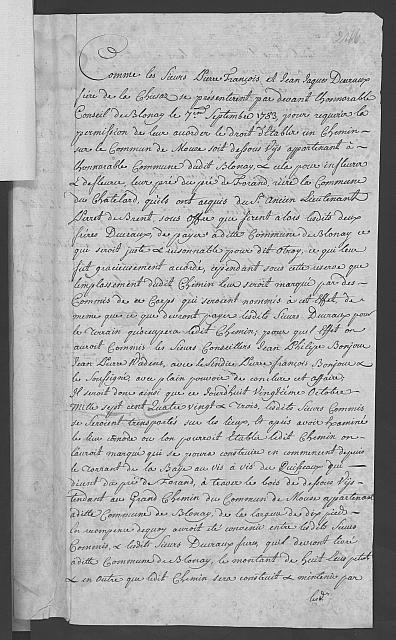 246
Comme les Sieurs Pierre François, et Jean Jaques Ducraux
frère de la Chusaz se présentèrent par devant l'honnorable
Conseil de Blonay le 7me Septembre 1783 pour requérir la
permission de leur accorder le droit d'Etablir un Chemin
sur le Commun de Mouse soit dessous Pijs appartenant à
l'honnorable Commune dudit Blonay, & cela pour
& leur pré du pré de Forand, riere la Commune
du Chatelard, qu'ils ont acquis du Sr. Ancien Lieutenant
Perret de Brent, sous Offre que firent alors lesdits deux
frères Ducraux, de payer adite Commune de Blonay ce
qui seroit juste & raisonnable pour dit Otroy, ce qui leur
fut gracieusement accordé, cependant sous cette reserve que
l'emplassement dudit Chemin leur seroit marqué par des
Commis de ce Corps qui seroient nommés à cet Effet, de
même que ce que devront payer lesdits Sieurs Ducraux pour
le Terrain qu'occupera ledit Chemin; pour quel Effet on
auroit Commis les Sieurs Conseillers Jean Philipe Bonjour
Jean Pierre avec le Sindic Pierre françois Bonjour &
le Soussigné, avec plain pouvoir de conclure cet affaire;
Il seroit donc ainsi que ce Jourdhuit Vingtième Octobre
Mille Sept cent Quatre vingt & Trois, lesdits Sieurs Commis
se seroient transportés sur les lieux, & après avoir Examiné
le lieu où lon pourroit Etablir ledit Chemin on
lauroit marqué qui se poura construire en commencent depuis
le Torrant de la Baye au vis à vis du Ruisseaux qui
dudit pré de Forand, à travers le bois de dessous Pijs
tendant au Grand Chemin du Commun de Mouse appartenant
adite Commune de Blonay, de la largeur de dix pieds
en recompense dequoy auroit été convenu entre lesdits Sieurs
Commis, & lesdits Sieurs Ducraux frères, qu'ils devront livré
adite Commune de Blonay, le montant de huit Ecus petit
& en outre que ledit Chemin sera construit & maintenu par